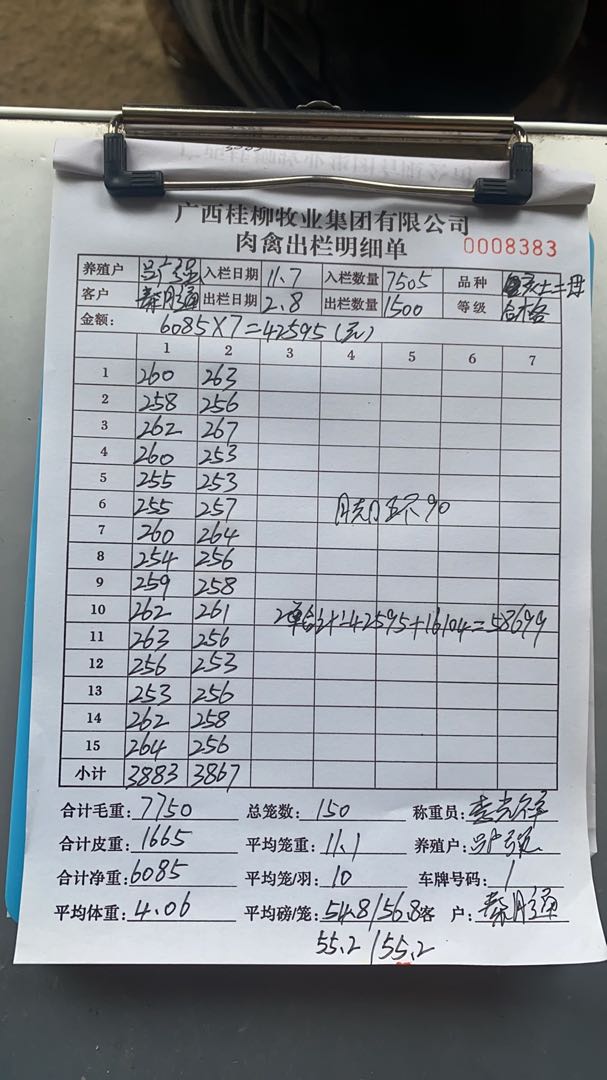 广西桂柳牧业集团有限公司
肉禽出栏明细单 0008383
养殖户 吕广强 入栏日期 11.7 入栏数量 7505 品种 土二母
客户 秦月通 出栏日期 2.8 出栏数量 1500 等级 合格
金额: 6085×7=42595(元)
1 2 3 4 5 6 7
1 260 263
2 258 256
3 262 267
4 260 253
5 255 253
6 255 257 90
7 260 264
8 254 256
9 259 258
10 262 261 2单合计:42595+16104=58699
11 263 256
12 256 253
13 253 256
14 262 258
15 264 256
小计 3883 3867
合计毛重: 7750 总笼数: 150 称重员:
合计皮重: 1665 平均笼重: 11.1 养殖户: 吕广强
合计净重: 6085 平均笼/羽: 10 车牌号码: 1
平均体重: 4.06 平均磅/笼: 54.8/56.8 客户: 秦月通
55.2/55.2